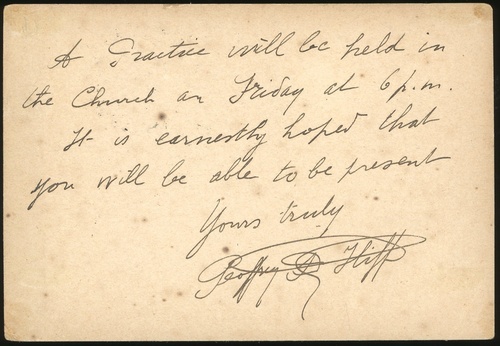 A Practice will be held in
the Church on Friday at 6 p.m.
It is earnestly hoped that
you will be able to be present
Yours truly
Geoffrey